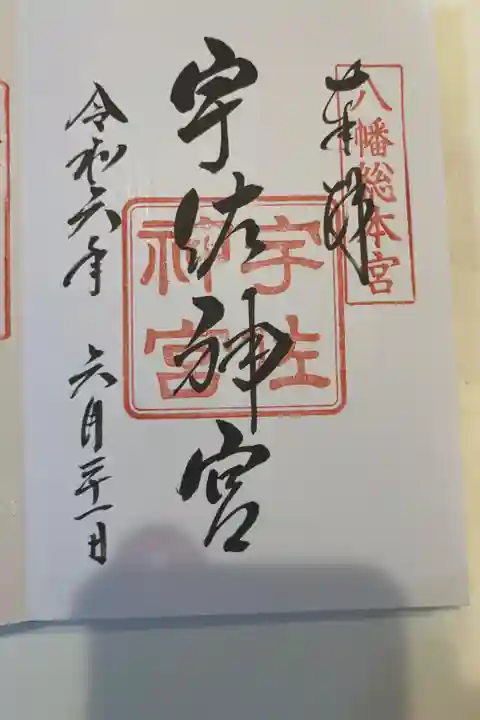 八幡総本宮
奉拝
宇佐神宮
宇佐
神宮
令和六年 六月二十一日